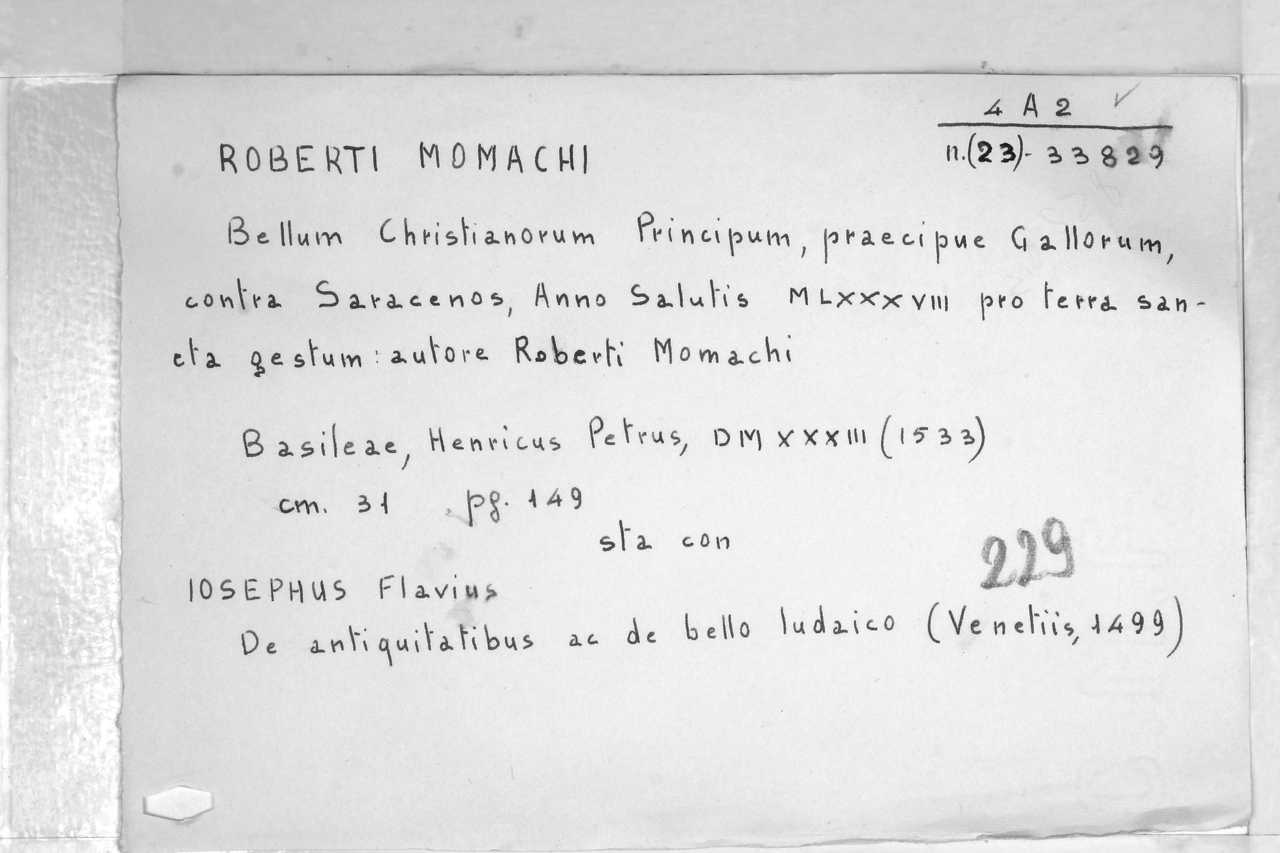 4 A 2 ✓
n.(23)-33829
ROBERTI MOMACHI
Bellum Christianorum Principum, praecipue Gallorum,
contra Saracenos, Anno Salutis MLXXXVIII pro terra san-
cta gestum: autore Roberti Momachi
Basileae, Henricus Petrus, DMXXXIII (1533)
cm. 31 pg. 149
sta con
229
IOSEPHUS Flavius
De antiquitatibus ac de bello Iudaico (Venetiis, 1499)